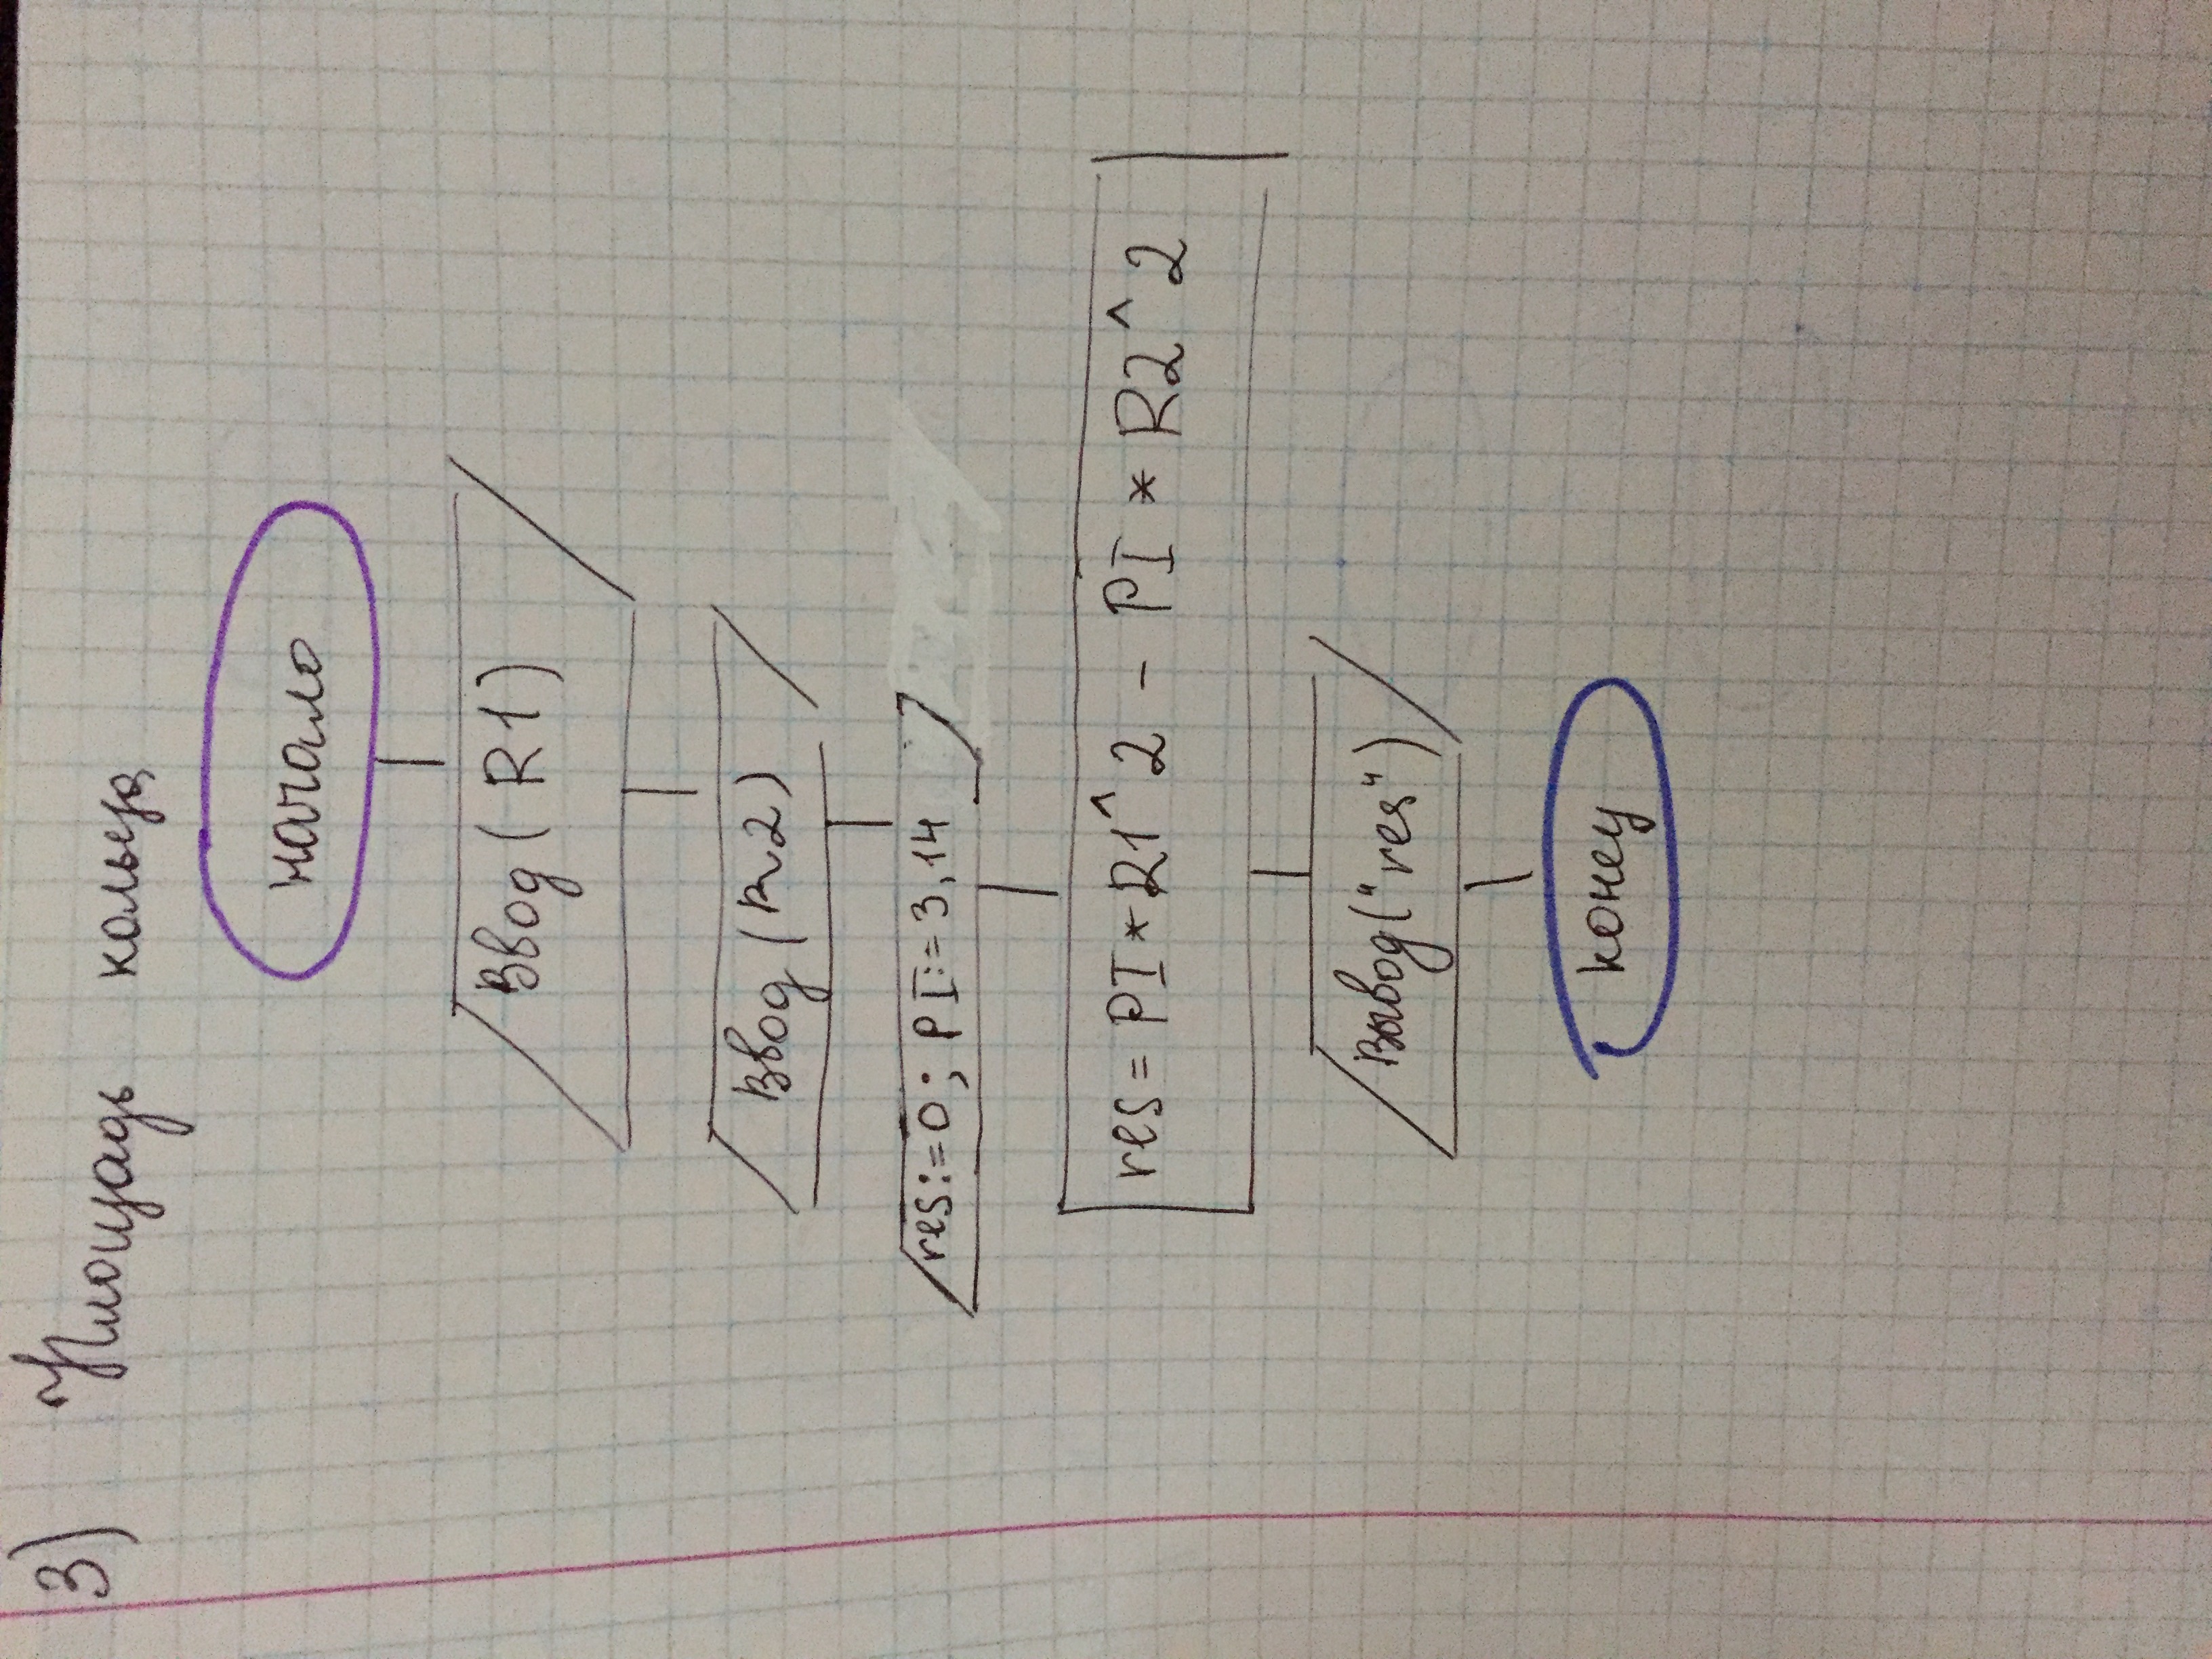 3) Площадь кольца
начало
Ввод (R1)
Ввод (R2)
res:=0; PI:=3,14
res = PI * R1^2 - PI * R2^2
Вывод("res")
конец